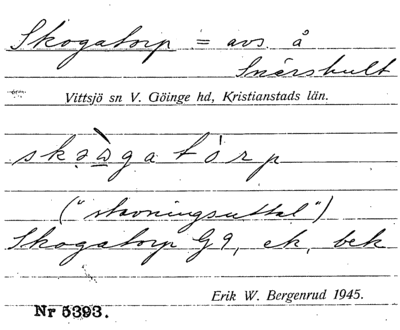 Skogatorp = avs å
Snärshult
Vittsjö sn V. Göinge hd, Kristianstads län.
skəògatórp
("stavningsuttal")
Skogatorp G9, ek, bek
Erik W. Bergenrud 1945.
Nr 5393.